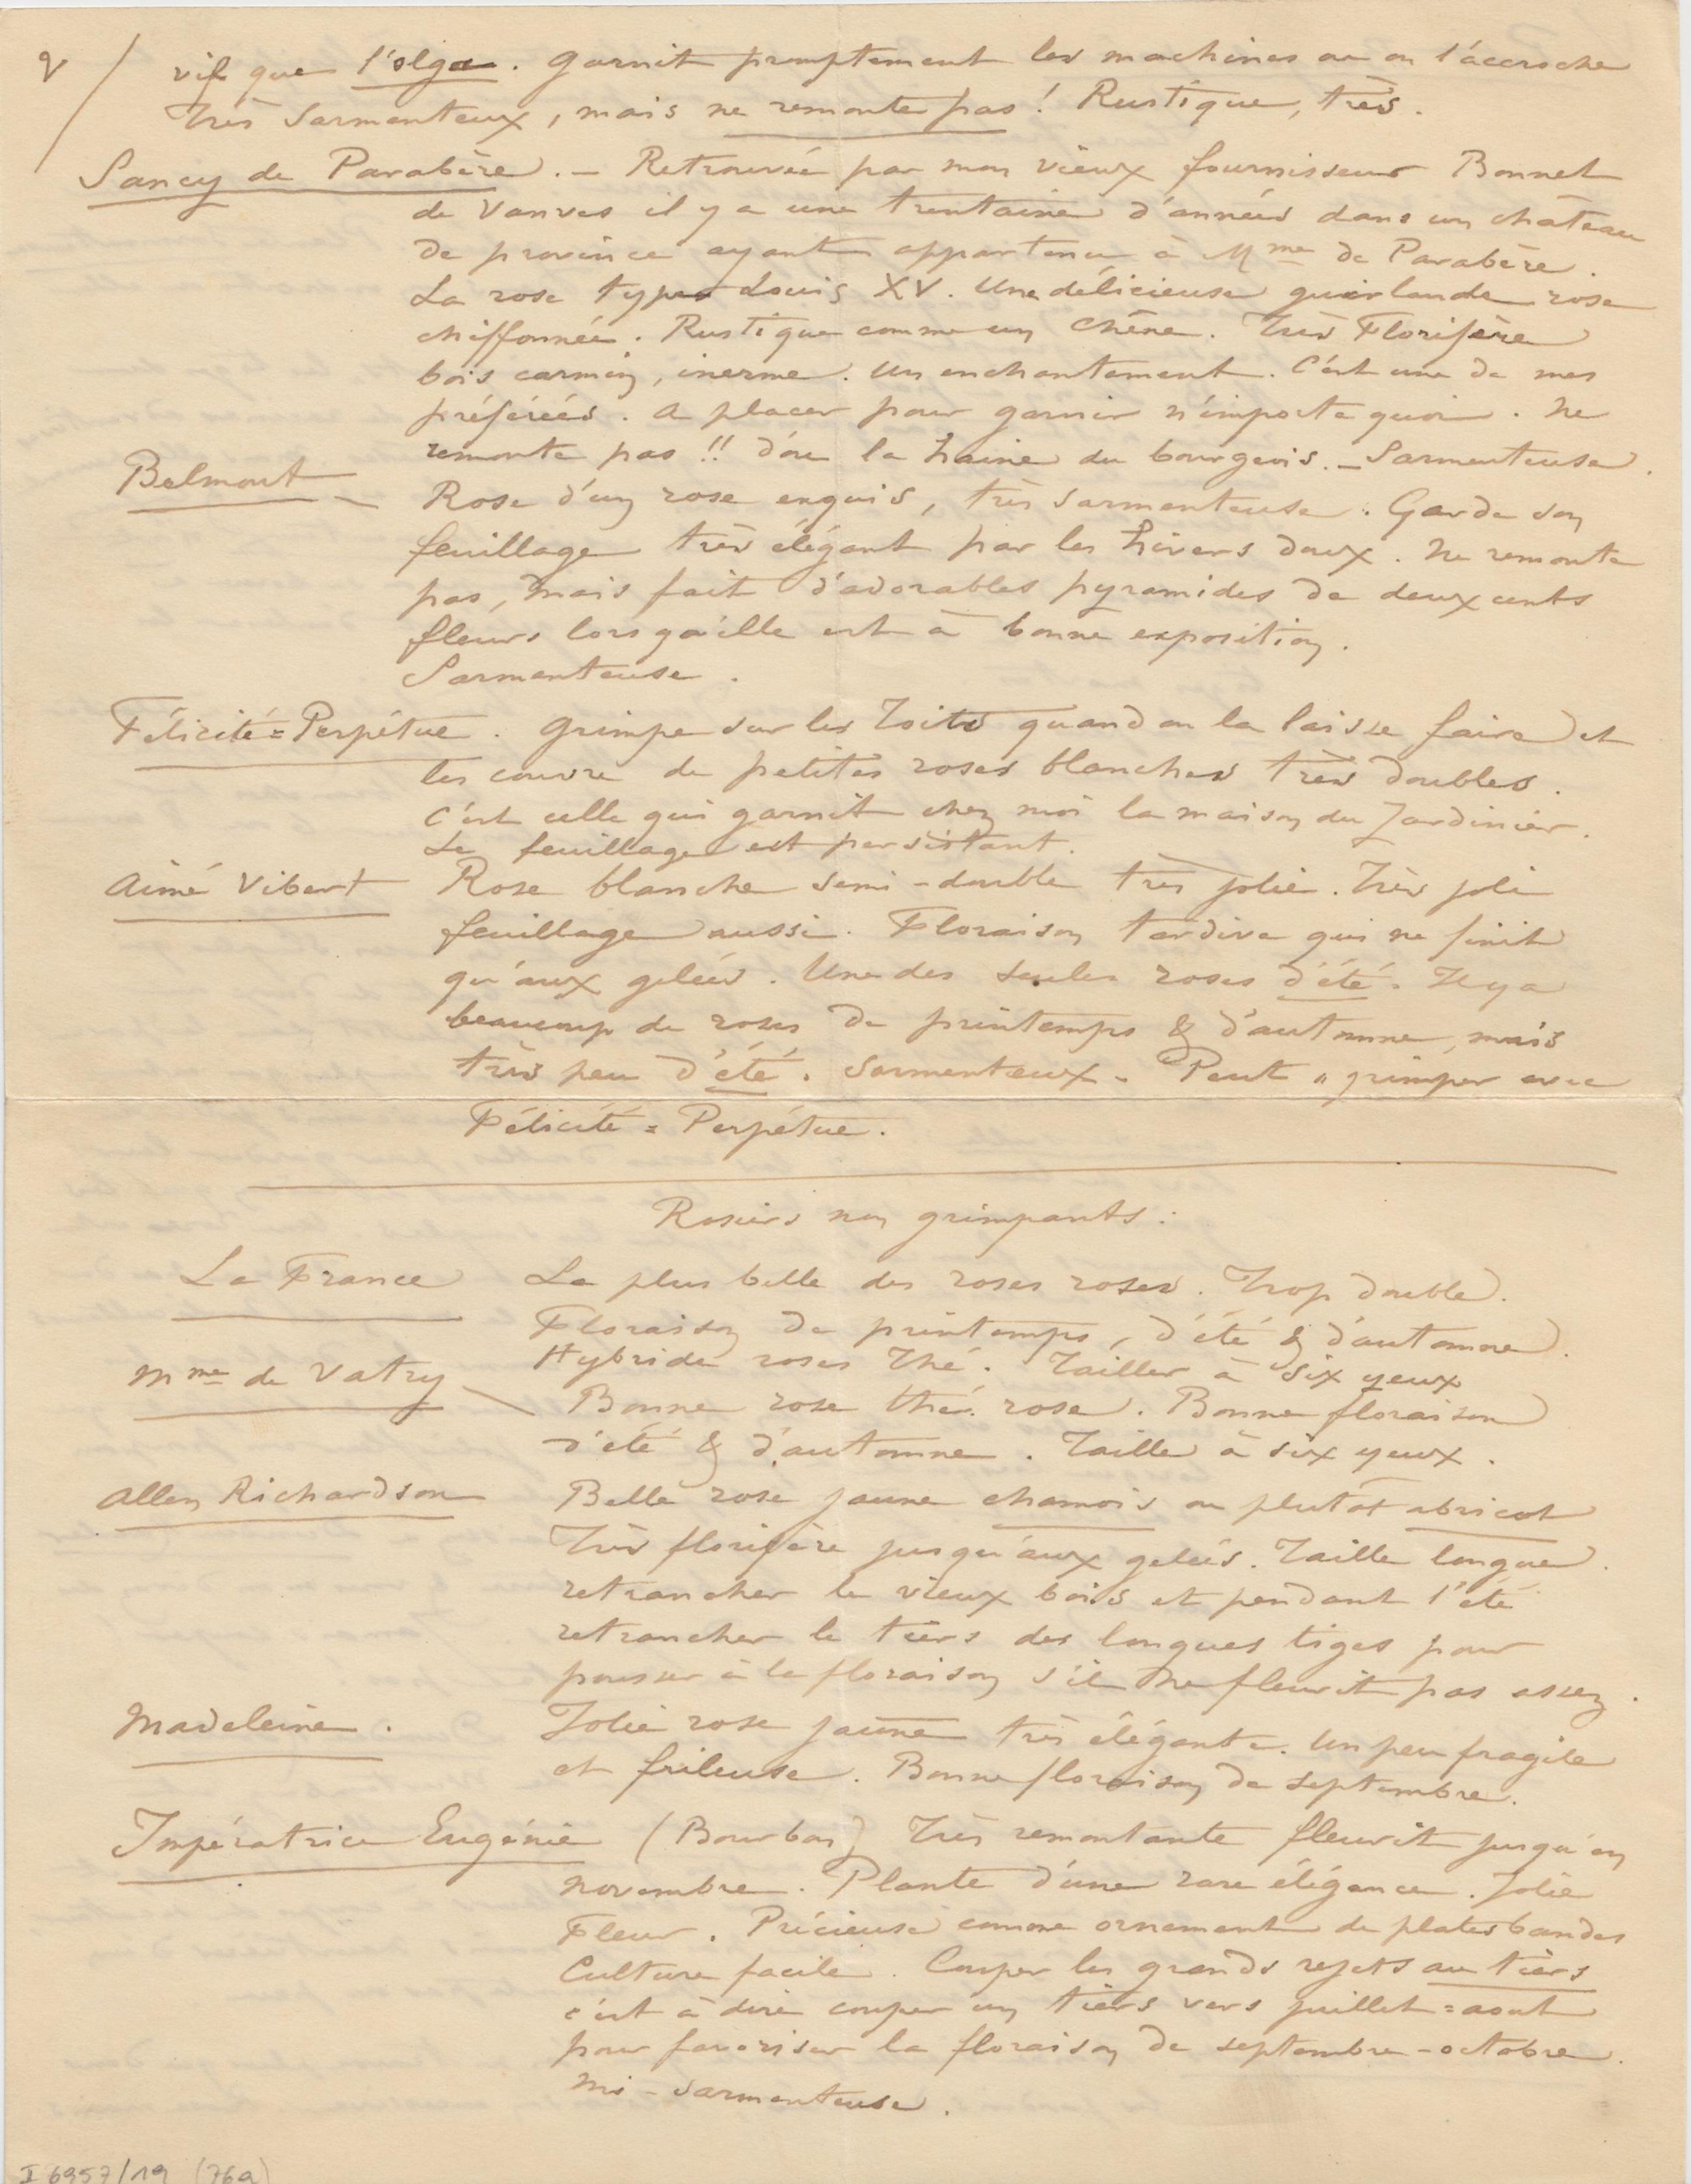 V / vif que l'olga. Garnit promptement les machines où on l'accroche
Très sarmenteux, mais ne remonte pas ! Rustique, très.
Sancy de Parabère. — Retrouvée par mon vieux fournisseur Bonnet
de Vanves il y a une trentaine d'années dans un château
de province ayant appartenu à Mme de Parabère.
La rose type Louis XV. Une délicieuse guirlande rose
chiffonnée. Rustique comme un chêne. Très Florifère
bois carmin, inerme. Un enchantement. C'est une de mes
préférées. A placer pour garnir n'importe quoi. Ne
remonte pas !! d'où la haine du bourgeois. — Sarmenteuse.
Belmont — Rose d'un rose exquis, très sarmenteuse. Garde son
feuillage très élégant par les hivers doux. Ne remonte
pas, mais fait d'adorables pyramides de deux cents
fleurs lorsqu'elle est à bonne exposition.
Sarmenteuse.
Félicité=Perpétue. Grimpe sur les toits quand on la laisse faire et
les couvre de petites roses blanches très doubles.
C'est celle qui garnit chez moi la maison du Jardinier.
Le feuillage est persistant.
Aimé Vibert Rose blanche semi-double très jolie. Très joli
feuillage aussi. Floraison tardive qui ne finit
qu'aux gelées. Une des seules roses d'été. Il y a
beaucoup de roses de printemps & d'automne, mais
très peu d'été. Sarmenteux. Peut grimper avec
Félicité=Perpétue.
Rosiers non grimpants :
La France La plus belle des roses roses. Trop double.
Floraison de printemps, d'été & d'automne.
Hybride roses Thé. Tailler à six yeux
Mme de Vatry — Bonne rose thé rose. Bonne floraison
d'été & d'automne. Taille à six yeux.
Allen Richardson Belle rose jaune chamois ou plutôt abricot
Très florifère jusqu'aux gelées. Taille longue.
retrancher le vieux bois et pendant l'été
retrancher le tiers des longues tiges pour
pousser à la floraison s'il ne fleurit pas assez.
Madeleine. Jolie rose jaune très élégante. Un peu fragile
et frileuse. Bonne floraison de septembre.
Impératrice Eugénie (Bourbon) Très remontante fleurit jusqu'en
novembre. Plante d'une rare élégance. Jolie
Fleur. Précieuse comme ornement de plates bandes
Culture facile. Couper les grands rejets au tiers
c'est à dire couper un tiers vers juillet=aout
pour favoriser la floraison de septembre-octobre.
Mi-sarmenteuse.
I 6957/19 (76a)